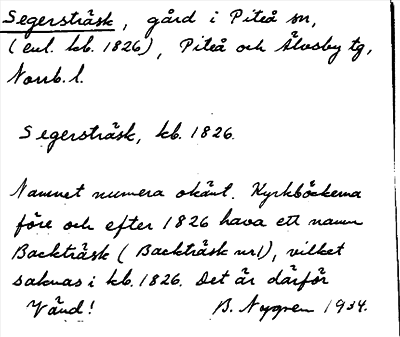 Segersträsk, gård i Piteå sn,
(enl. kb. 1826), Piteå och Älvsby tg,
Norrb. l.
Segersträsk, kb. 1826.
Namnet numera okänt. Kyrkböckerna
före och efter 1826 hava ett namn
Backträsk (Backträsk nr 1), vilket
saknas i kb. 1826. Det är därför
Vänd! B. Nygren 1934.